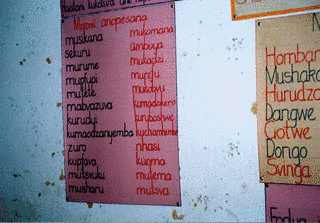 Mazwi anopesana
musikana mukomana
sekuru ambuya
murume mukadzi
mupfupi murefu
mutete mukobvu
mabvazuva kumadokero
kurudyi kuruboshwe
kumaodzanyemba kuchamhembe
zuro nhasi
kupfava kuoma
mutsvuku mutema
musharu mutsva
Hombar
Mushara
Hurudza
Dangwe
Gotwe
Dongo
Svinga